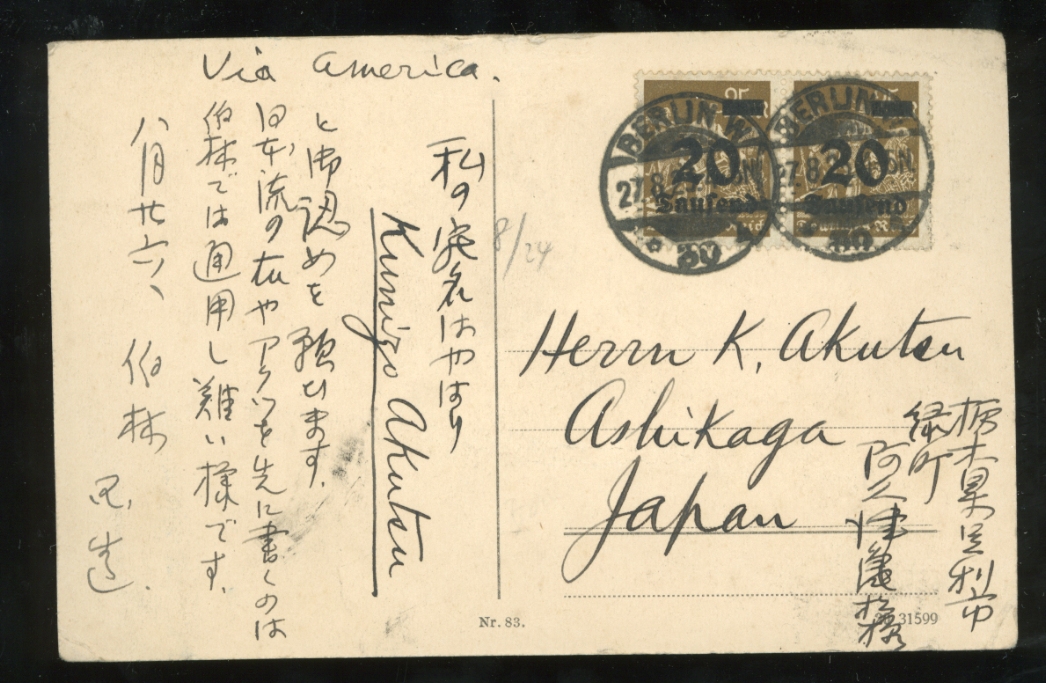 Via America.
私の宛名はやはり
Kunizo Akutsu
と御認めを願ひます。
日本流の 和 や アクツを先に書くのは
伯林では通用し難い様です。
八月廿六、伯林
8/24
BERLIN W
27.8.23
20
Tausend
30
BERLIN
27.8.2
20
Tausend
Herrn K. Akutsu
Ashikaga
Japan
栃木県足利市
緑町
阿久津 様
Nr. 83.
31599